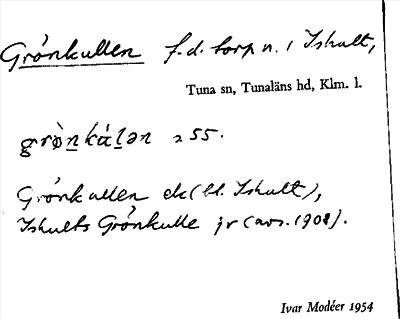 Grönkullen f.d. torp n. i Ishult,
Tuna sn, Tunaläns hd, Klm. l.
grö̀n̲kúl̲ən 255.
Grönkullen ek (bl. Ishult),
Ishults Grönkulle jr (avs. 1908).
Ivar Modéer 1954